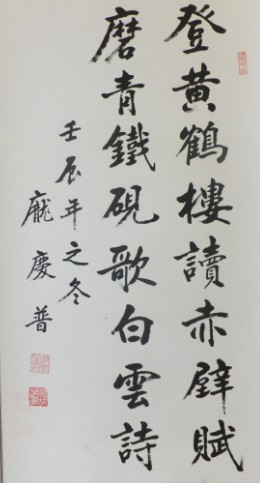 登黃鶴樓讀赤壁賦
磨青鐵硯歌白雲詩
壬辰年之冬
龐慶普